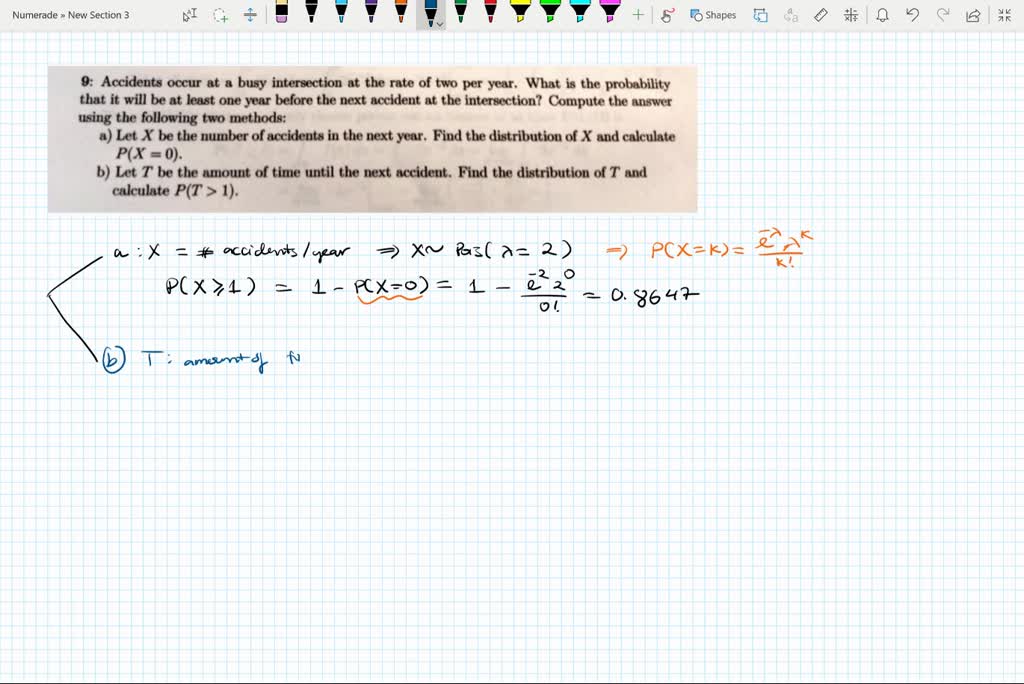 Numerade » New Section 3
Shapes
9: Accidents occur at a busy intersection at the rate of two per year. What is the probability
that it will be at least one year before the next accident at the intersection? Compute the answer
using the following two methods:
a) Let X be the number of accidents in the next year. Find the distribution of X and calculate
P(X = 0).
b) Let T be the amount of time until the next accident. Find the distribution of T and
calculate P(T > 1).
a : X = # accidents/year ⇒ X~ Pois( λ= 2) ⇒ P(X=K)= e^-λ λ^K / K!
P(X⩾1) = 1 - P(X=0) = 1 - e^-2 2^0 / 0! = 0.8647
(b) T: amount of